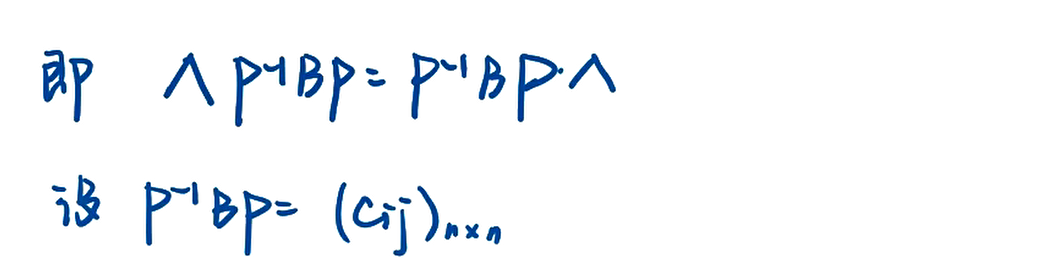 即 Λ P⁻¹BP = P⁻¹BP·Λ
设 P⁻¹BP = (Cij)ₙₓₙ